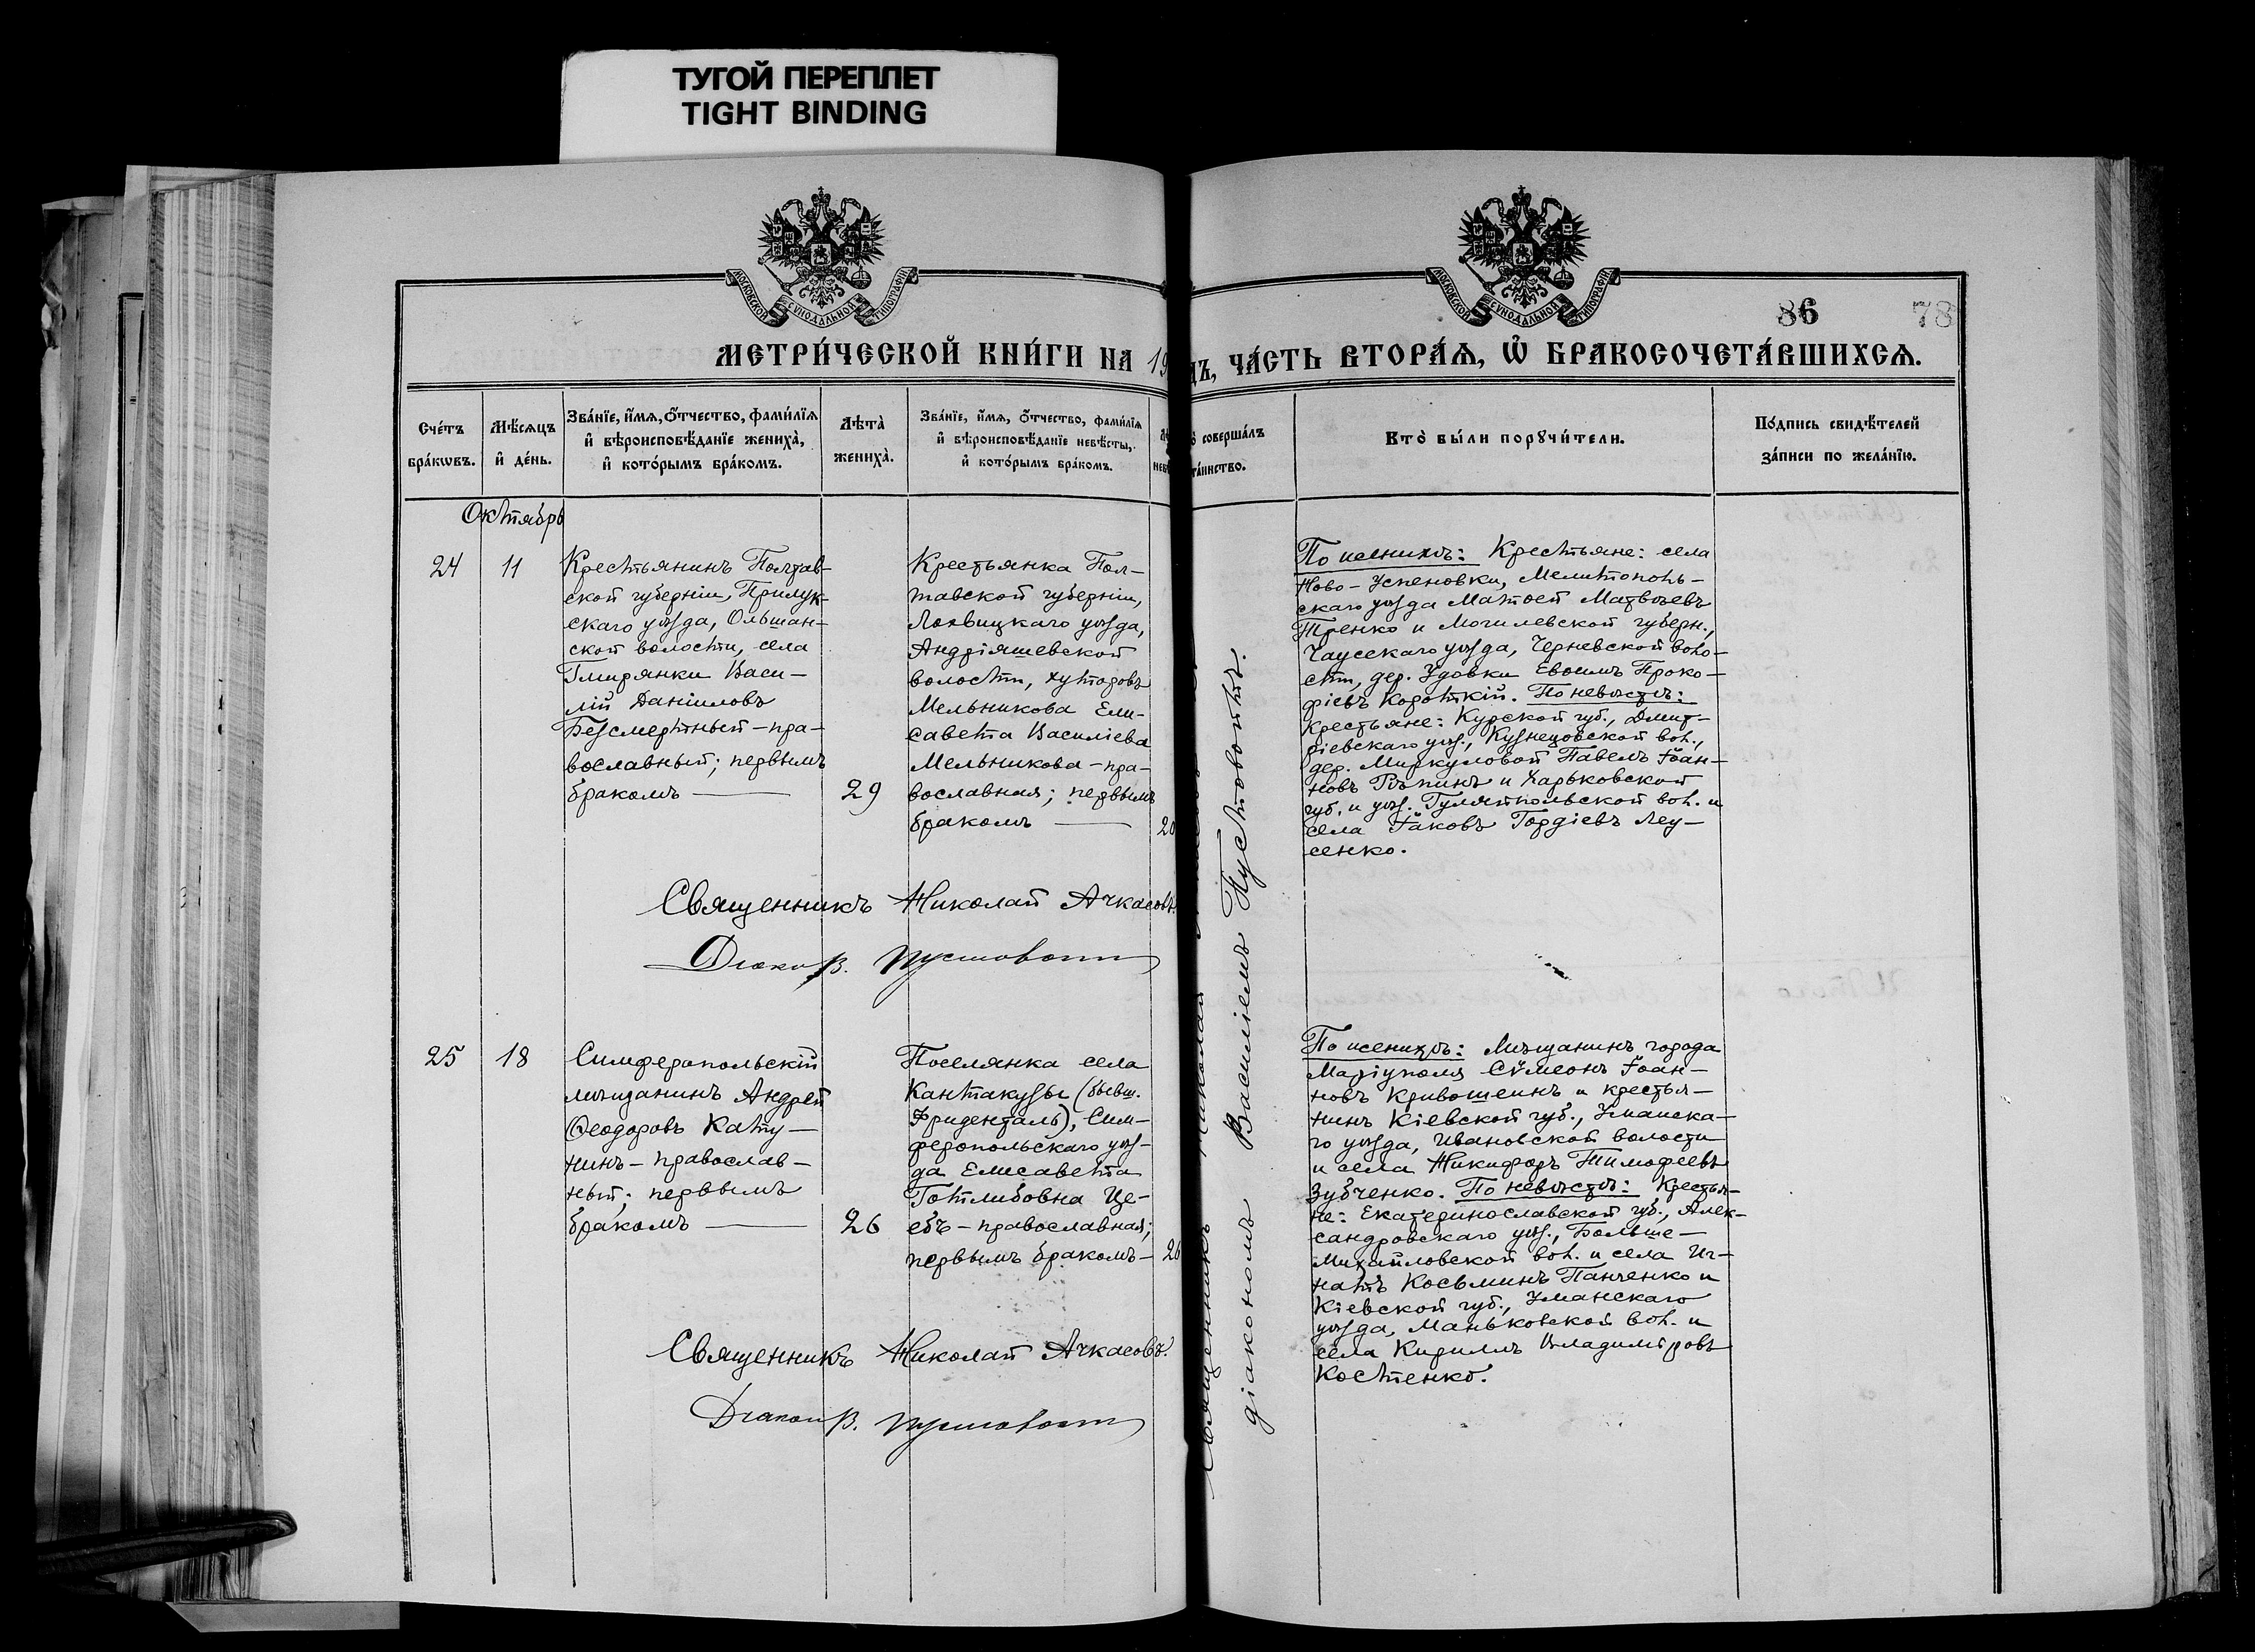 ТУГОЙ ПЕРЕПЛЕТ
TIGHT BINDING
МОСКОВСКОЙ СУНОДАЛЬНОЙ ТИПОГРАФІИ
МОСКОВСКОЙ СУНОДАЛЬНОЙ ТИПОГРАФІИ
86 78
МЕТРИ́ЧЕСКОЙ КНИ́ГИ НА 19
ДЪ, ЧА́СТЬ ВТОРА́Ѧ, Ѡ҆ БРАКОСОЧЕТА́ВШИХСѦ.
Сче́тъ
бра́кѡвъ.
Мѣ́сѧцъ
и҆ де́нь.
Зва́нїе, и҆́мѧ, о҆́тчество, фами́лїѧ
и҆ вѣроисповѣ́данїе жениха̀,
и҆ кото́рымъ бра́комъ.
Лѣта̀
жениха̀.
Зва́нїе, и҆́мѧ, о҆́тчество, фами́лїѧ
и҆ вѣроисповѣ́данїе невѣ́сты,
и҆ кото́рымъ бра́комъ.
совершáлъ
та́инство.
Кто̀ бы́ли порꙋчи́тели.
По́дпись свидѣ́телей
за́писи по жела́нїю.
Октябрь
24
11
Крестьянинъ Полтав-
ской губерніи, Прилук-
скаго уѣзда, Ольшан-
ской волости, села
Гмирянки Васи-
лій Даніиловъ
Безсмертный - пра-
вославный; первымъ
бракомъ —
29
Крестьянка Пол-
тавской губерніи,
Лохвицкаго уѣзда,
Андріяшевской
волости, хуторовъ
Мельникова Ели-
савета Василіева
Мельникова - пра-
вославная; первымъ
бракомъ —
20
По женихѣ: Крестьяне: села
Ново-Успеновки, Мелитополь-
скаго уѣзда Матѳей Матвѣевъ
Тренко и Могилевской губерн.,
Чаусскаго уѣзда, Черневской воло-
сти, дер. Удовки Евѳимъ Проко-
фіевъ Короткій. По невѣстѣ:
Крестьяне: Курской губ., Дмит-
ріевскаго уѣз., Кузнецовской вол.,
дер. Миркуловой Павелъ Іоан-
новъ Рѣпинъ и Харьковской
губ. и уѣз. Гуляйпольской вол. и
села Іаковъ Гордіевъ Леу-
сенко.
Священникъ Николай Ачкасовъ.
Діаконъ В. Пустовойт
25
18
Симферопольскій
мѣщанинъ Андрей
Ѳеодоровъ Кату-
нинъ - православ-
ный; первымъ
бракомъ —
26
Поселянка села
Кантакузы (бывш.
Фриденталь), Сим-
феропольскаго уѣз-
да Елисавета
Готлибовна Це-
ебъ - православная;
первымъ бракомъ -
26
По женихѣ: Мѣщанинъ города
Маріуполя Сѵмеонъ Іоан-
новъ Кривошеинъ и крестья-
нинъ Кіевской губ., Уманска-
го уѣзда, Ивановской волости
и села Никифоръ Тимофеевъ
Зубченко. По невѣстѣ: Крестья-
не: Екатеринославской губ., Алек-
сандровскаго уѣз., Больше-
Михайловской вол. и села Иг-
натъ Косьминъ Панченко и
Кіевской губ., Уманскаго
уѣзда, Маньковской вол. и
села Кириллъ Владиміровъ
Костенко.
Священникъ Николай Ачкасовъ.
Діаконъ В. Пустовойт
Священникъ Николай
діакономъ Василіемъ Пустовойтъ.